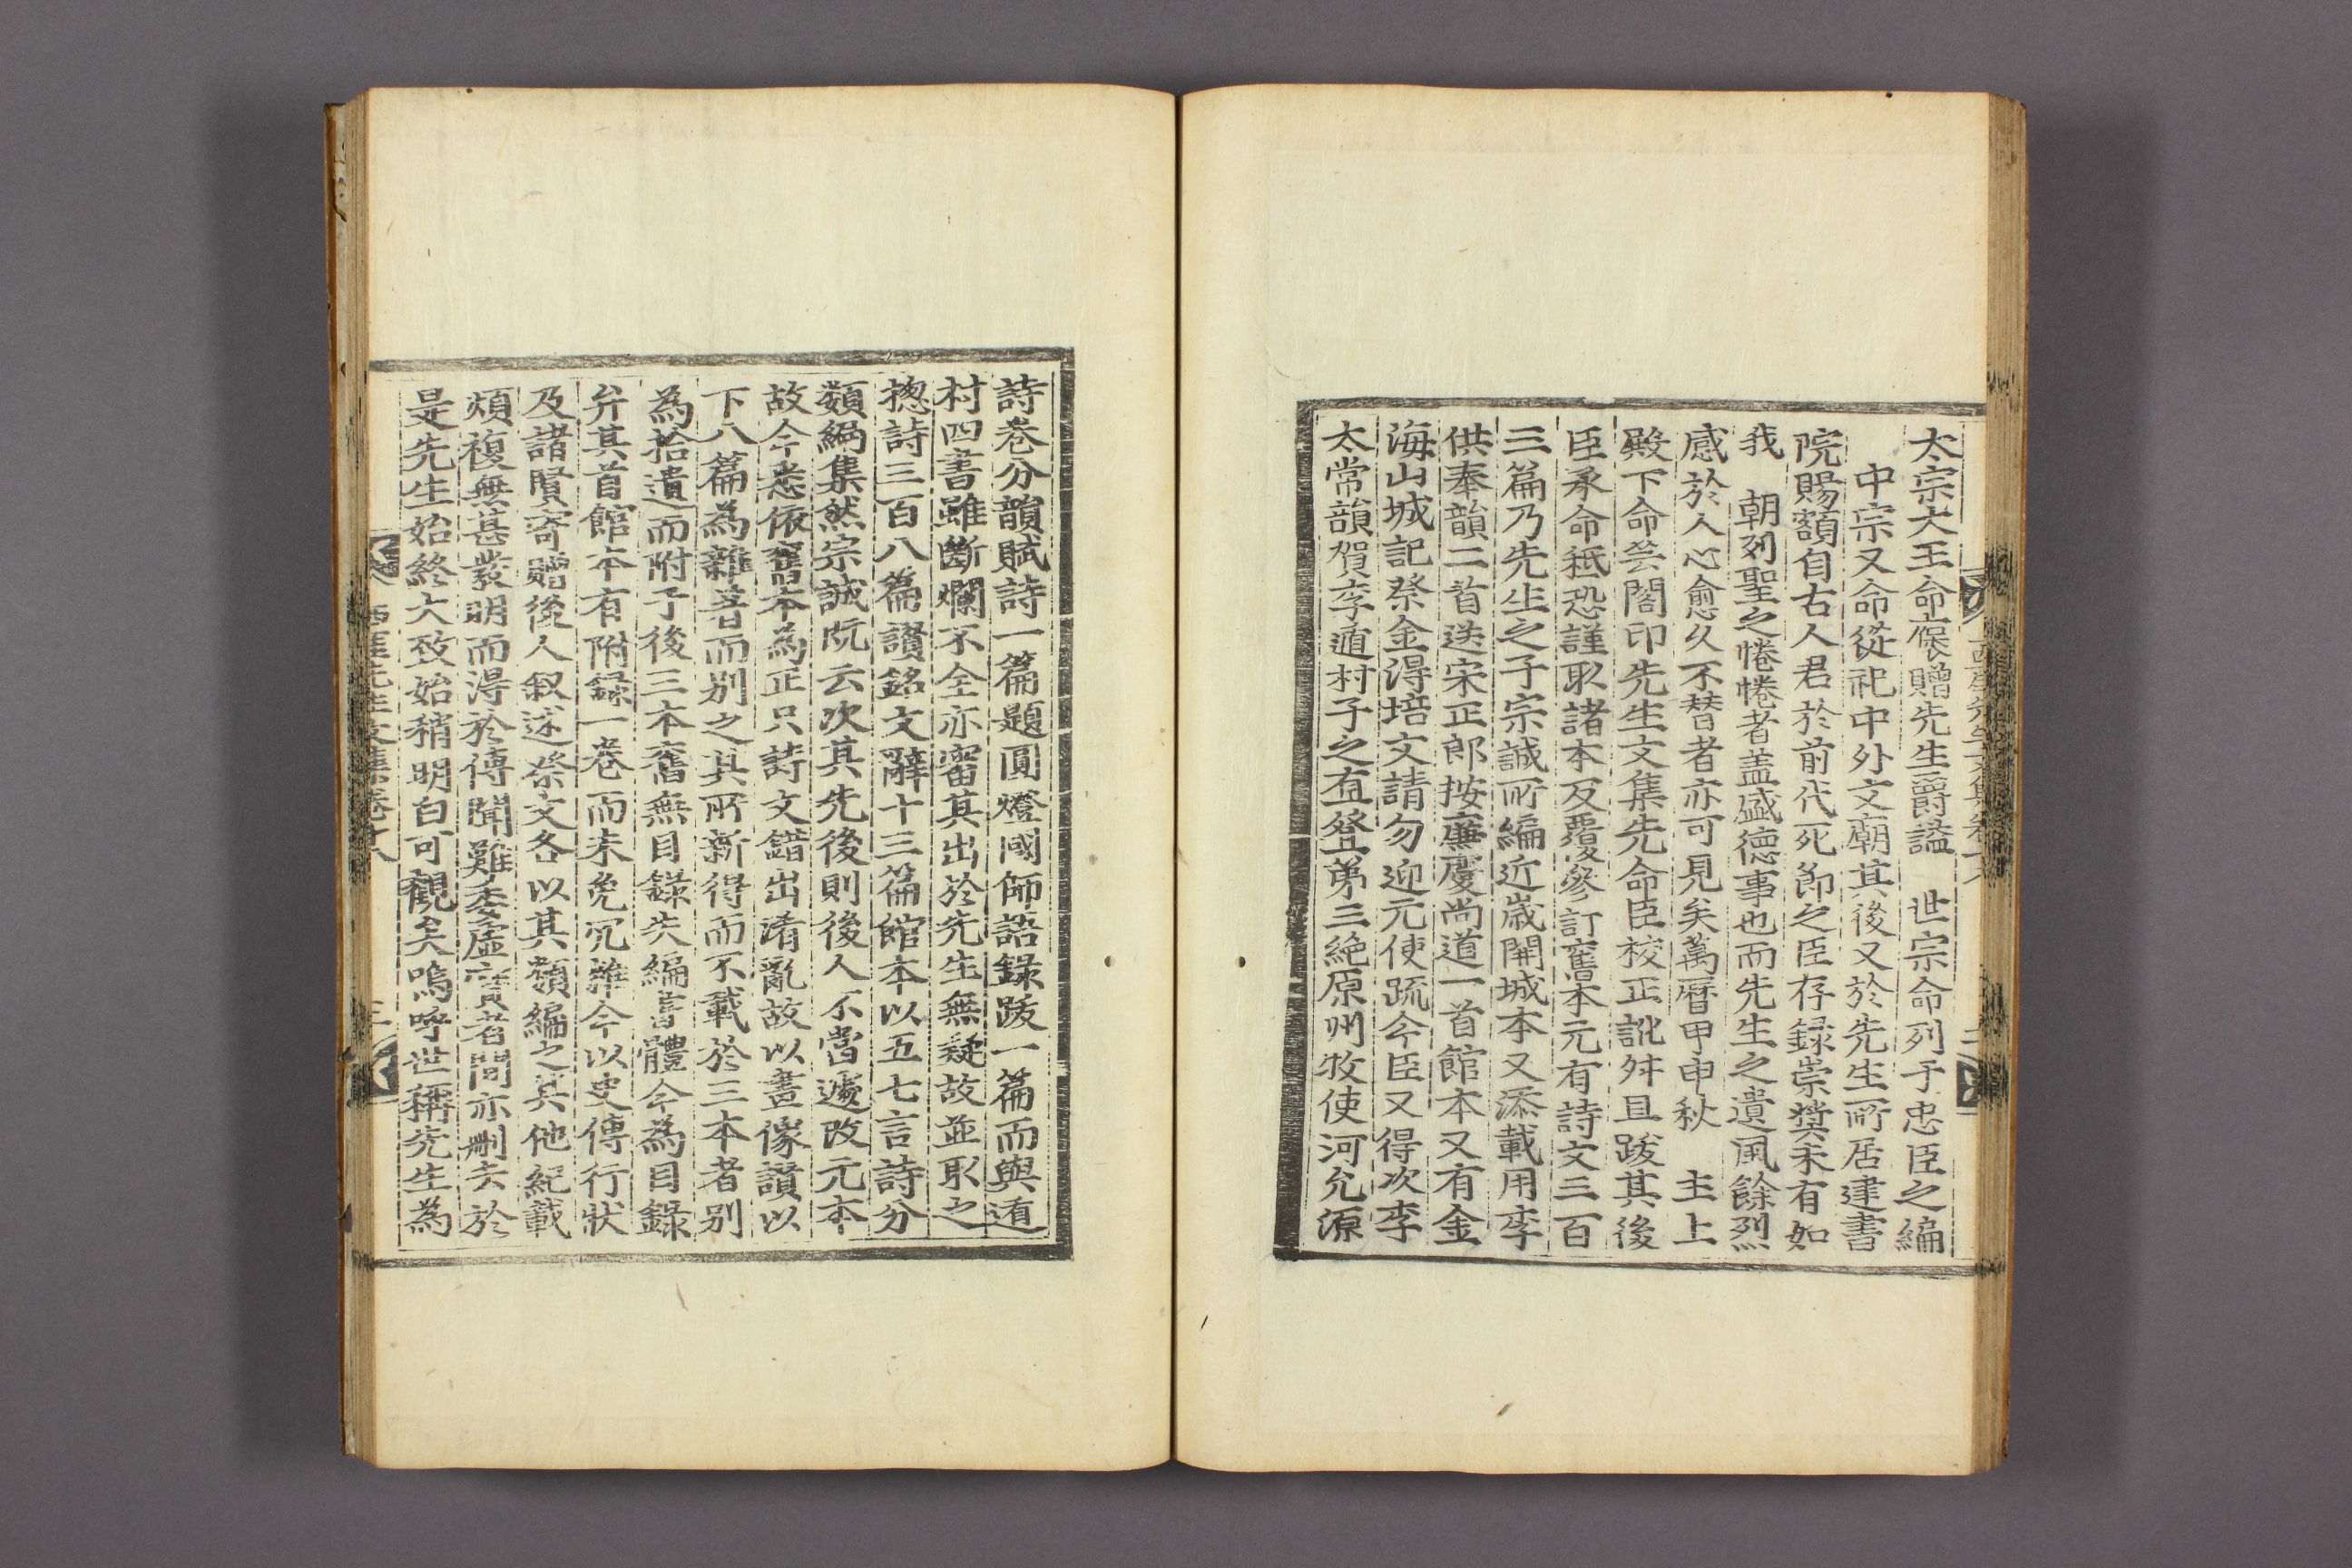 太宗大王命褒贈先生爵謚 世宗命列于忠臣之編
中宗又命從祀中外文廟其後又於先生所居建書
院賜額自古人君於前代死節之臣存録崇奬未有如
我 朝列聖之惓惓者盖盛德事也而先生之遺風餘烈
感於人心愈久不替者亦可見矣萬曆甲申秋 主上
殿下命芸閣印先生文集先命臣校正訛舛且跋其後
臣承命秪恐謹取諸本反覆參訂舊本元有詩文三百
三篇乃先生之子宗誠所編近歲開城本又添載用李
供奉韻二首送宋正郎按廉慶尚道一首館本又有金
海山城記祭金得培文請勿迎元使疏今臣又得次李
太常韻賀李遁村子之直登苐三絶原州牧使河允源
西厓先生文集卷十八
三
詩卷分韻賦詩一篇題圓燈國師語録跋一篇而與遁
村四書雖斷爛不全亦審其出於先生無疑故並取之
揔詩三百八篇讃銘文辭十三篇館本以五七言詩分
類編集然宗誠既云次其先後則後人不當遽改元本
故今悉依舊本為正只詩文錯出淆亂故以畫像讃以
下八篇為雜著而别之其所新得而不載於三本者别
為拾遺而附于後三本舊無目録失編書體今為目録
弁其首館本有附録一卷而未免冗雜今以史傳行狀
及諸賢寄贈後人叙述祭文各以其類編之其他紀載
煩複無甚發明而得於傳聞難委虚實者間亦刪去於
是先生始終大致始稍明白可觀矣嗚呼世稱先生為